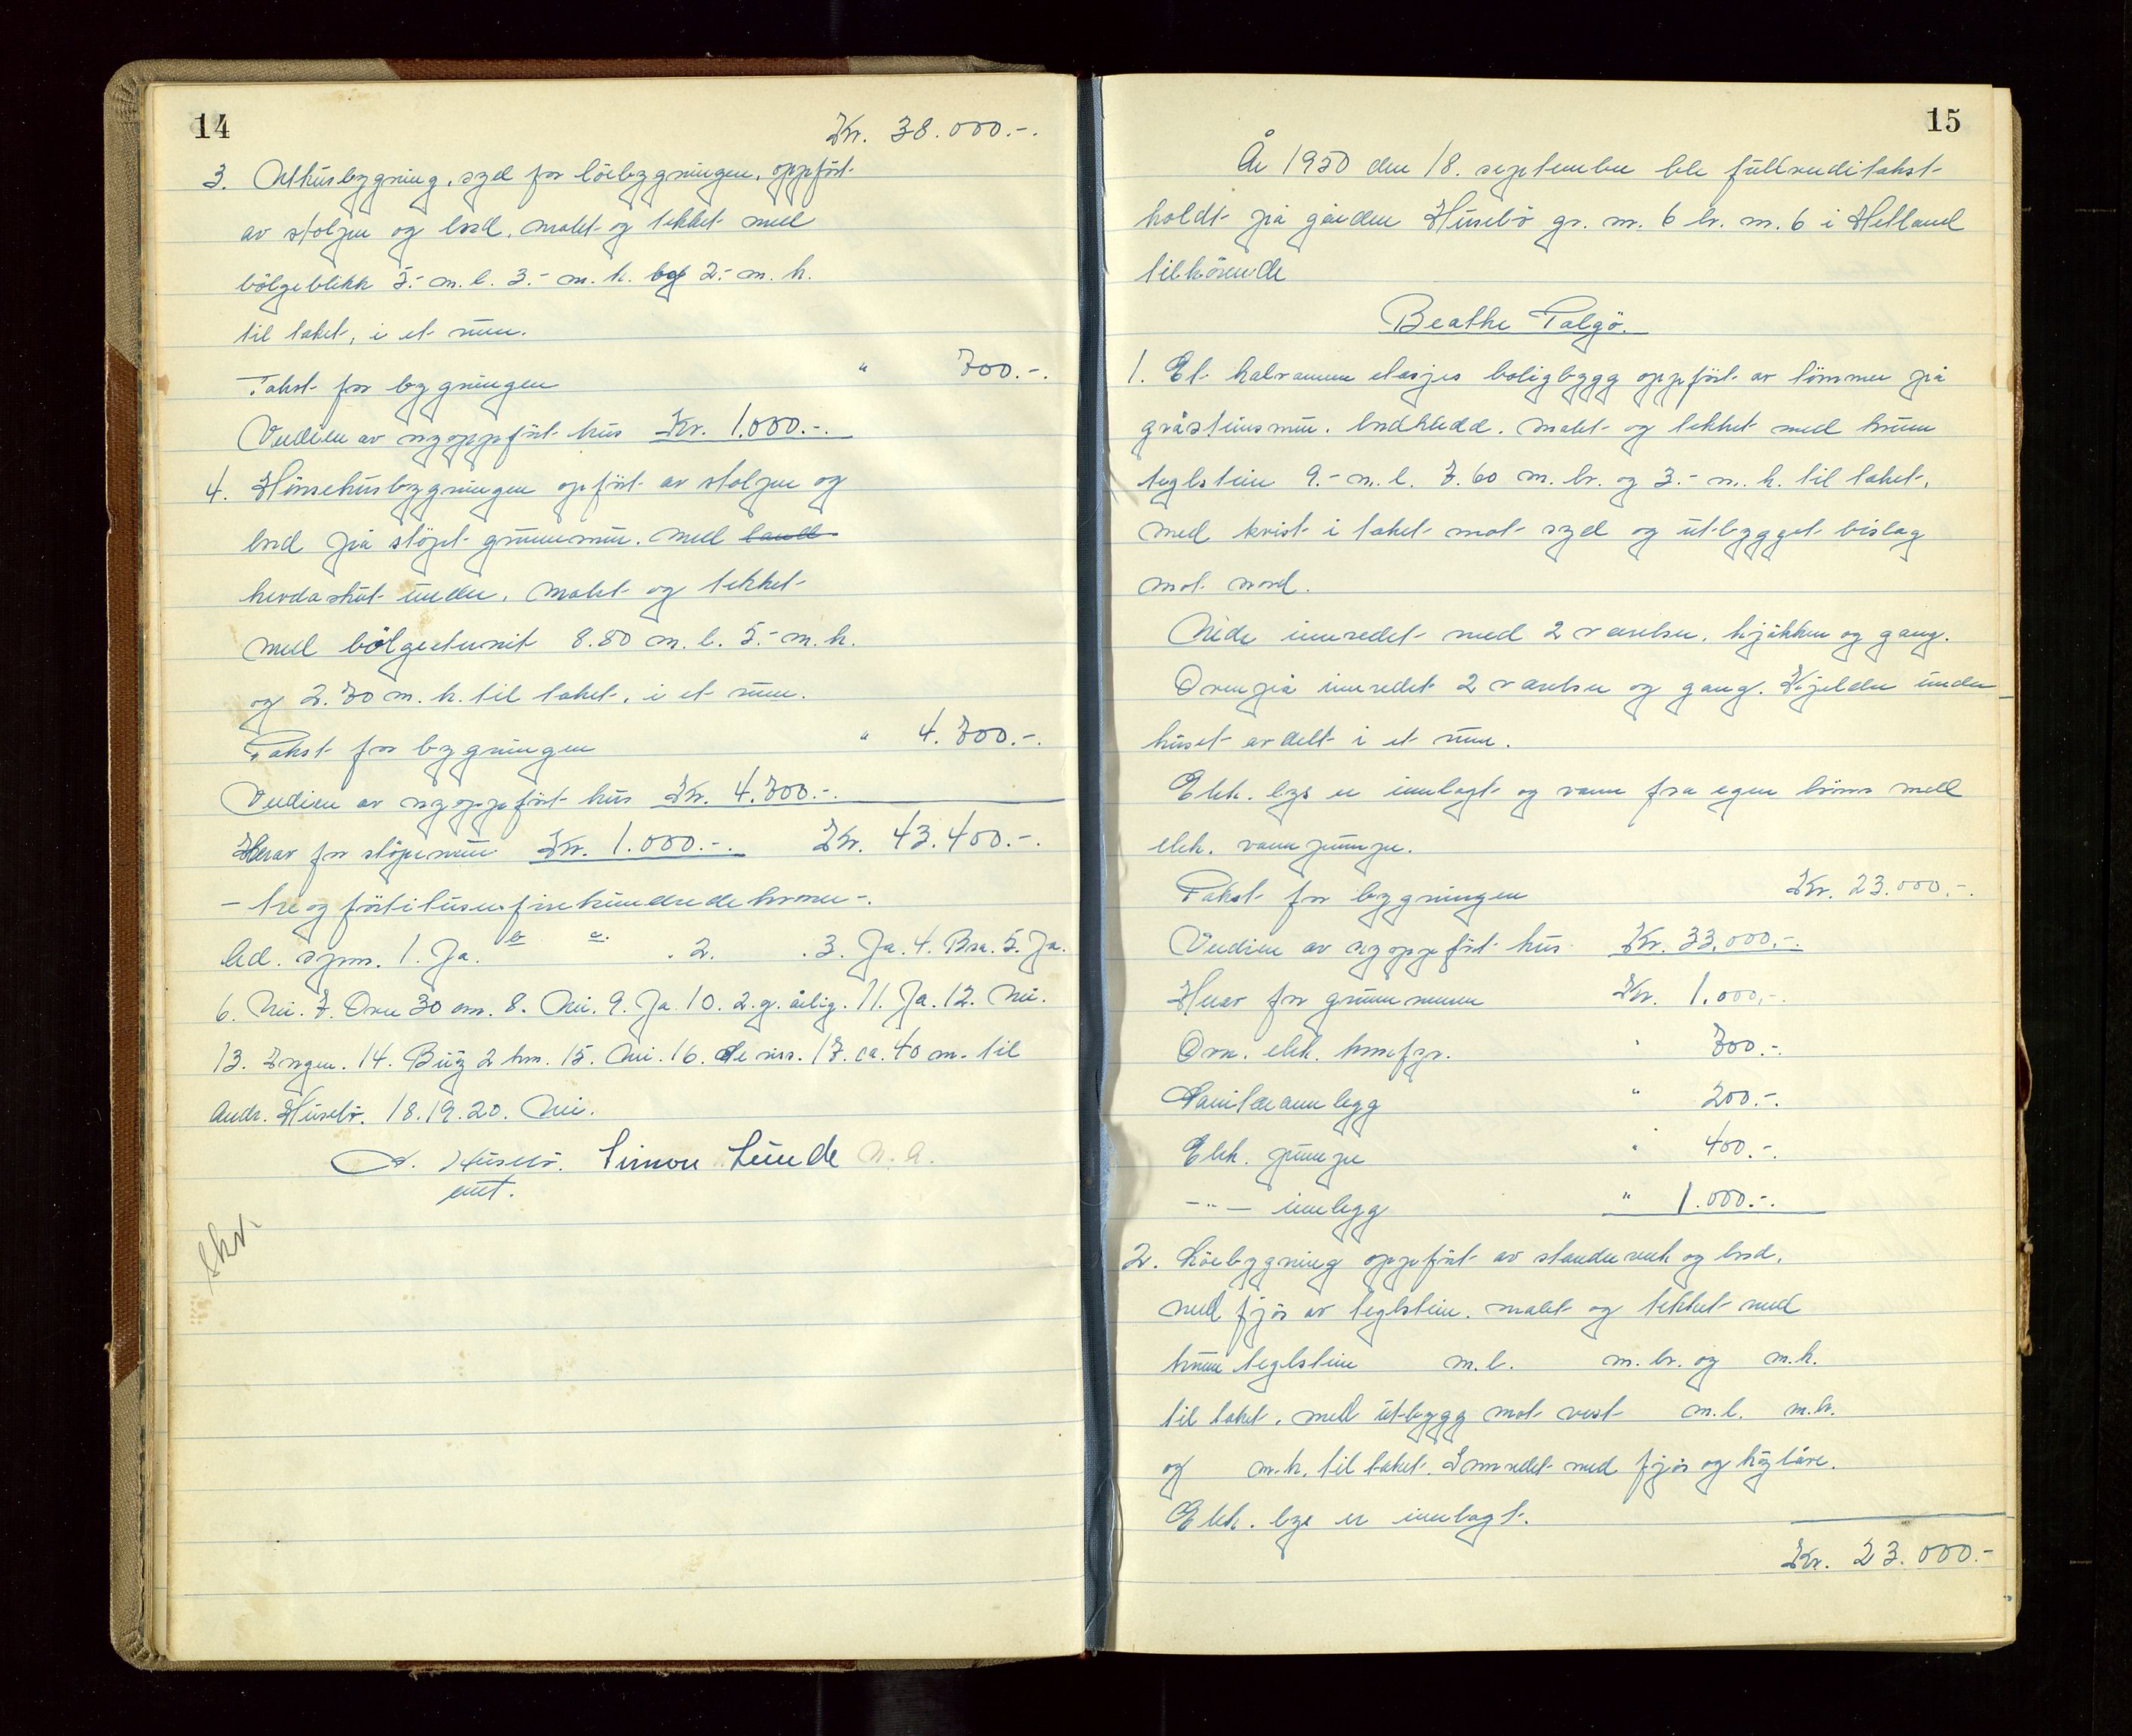 14
Kr. 38.000.-.
3. Uthusbygning, syd for löebygningen, oppfört
av stolper og bord, malt og tekket med
bölgeblikk 5.- m. l. 3.- m. b. og 2.- m. h.
til taket, i et rum.
Takst for bygningen " 700.-.
Verdien av nyoppfört hus Kr. 1.000.-.
4. Hönsehusbygningen opfört av stolper og
bord på stöpt grunnmur. med
herdaskut under. Malt og tekket
med bölgeeternit 8.80 m. l. 5.- m. b.
og 2.70 m. h. til taket, i et rum.
Takst for bygningen " 4.700.-.
Verdien av nyoppfört hus Kr. 4.700.-.
Herav for stöpemur Kr. 1.000.-. Kr. 43.400.-.
- tre og förtitusenfirehundrede kroner -.
Ad. spm. 1. Ja. b a. . 2. . 3. Ja. 4. Bra. 5. Ja.
6. Nei. 7. Over 30 cm. 8. Nei. 9. Ja. 10. 2. g. årlig. 11. Ja. 12. Nei.
13. Ingen. 14. Bug 2 km. 15. Nei. 16. 17. ca. 40 m. til
Andr. Husebö. 18. 19. 20. Nei.
A. Husebö. Simon Lunde N. A.
emt.
Skr.
15
År 1950 den 18. september ble fullverditakst
holdt på gården Husebö gr. nr. 6 br. nr. 6 i Hetland
tilhörende
Beathe Talgö.
1. Et halvannen etasjes boligbygg oppfört av tömmer på
gråsteinsmur. bordkledd. malt og tekket med krum
teglstein 9.- m. l. 7.60 m. br. og 3.- m. h. til taket,
med kvist i taket mot syd og utbygget bislag
mot nord.
Nede innredet med 2 værelser, kjökken og gang.
Ovenpå innredet 2 værelser og gang. Kjelder under
huset avdelt i et rum.
Elek. lys er innlagt og vann fra egen brönn med
elek. vannpumpe.
Takst for bygningen Kr. 23.000.-.
Verdien av nyoppfört hus Kr. 33.000.-.
Herav for grunnmuren Kr. 1.000,-.
Ovn. elek. komfyr. " 700.-.
Sanitæranlegg " 200.-.
Elek. pumpe " 400.-.
- " - innlegg " 1.000.-.
2. Löebygning oppfört av standerverk og bord,
med fjös av teglstein. malt og tekket med
krum teglstein m. l. m. br. og m. h.
til taket, med utbygg mot vest m. l. m. br.
og m. h. til taket. Innredet med fjös og höylåve.
Elek. lys er innlagt.
Kr. 23.000.-